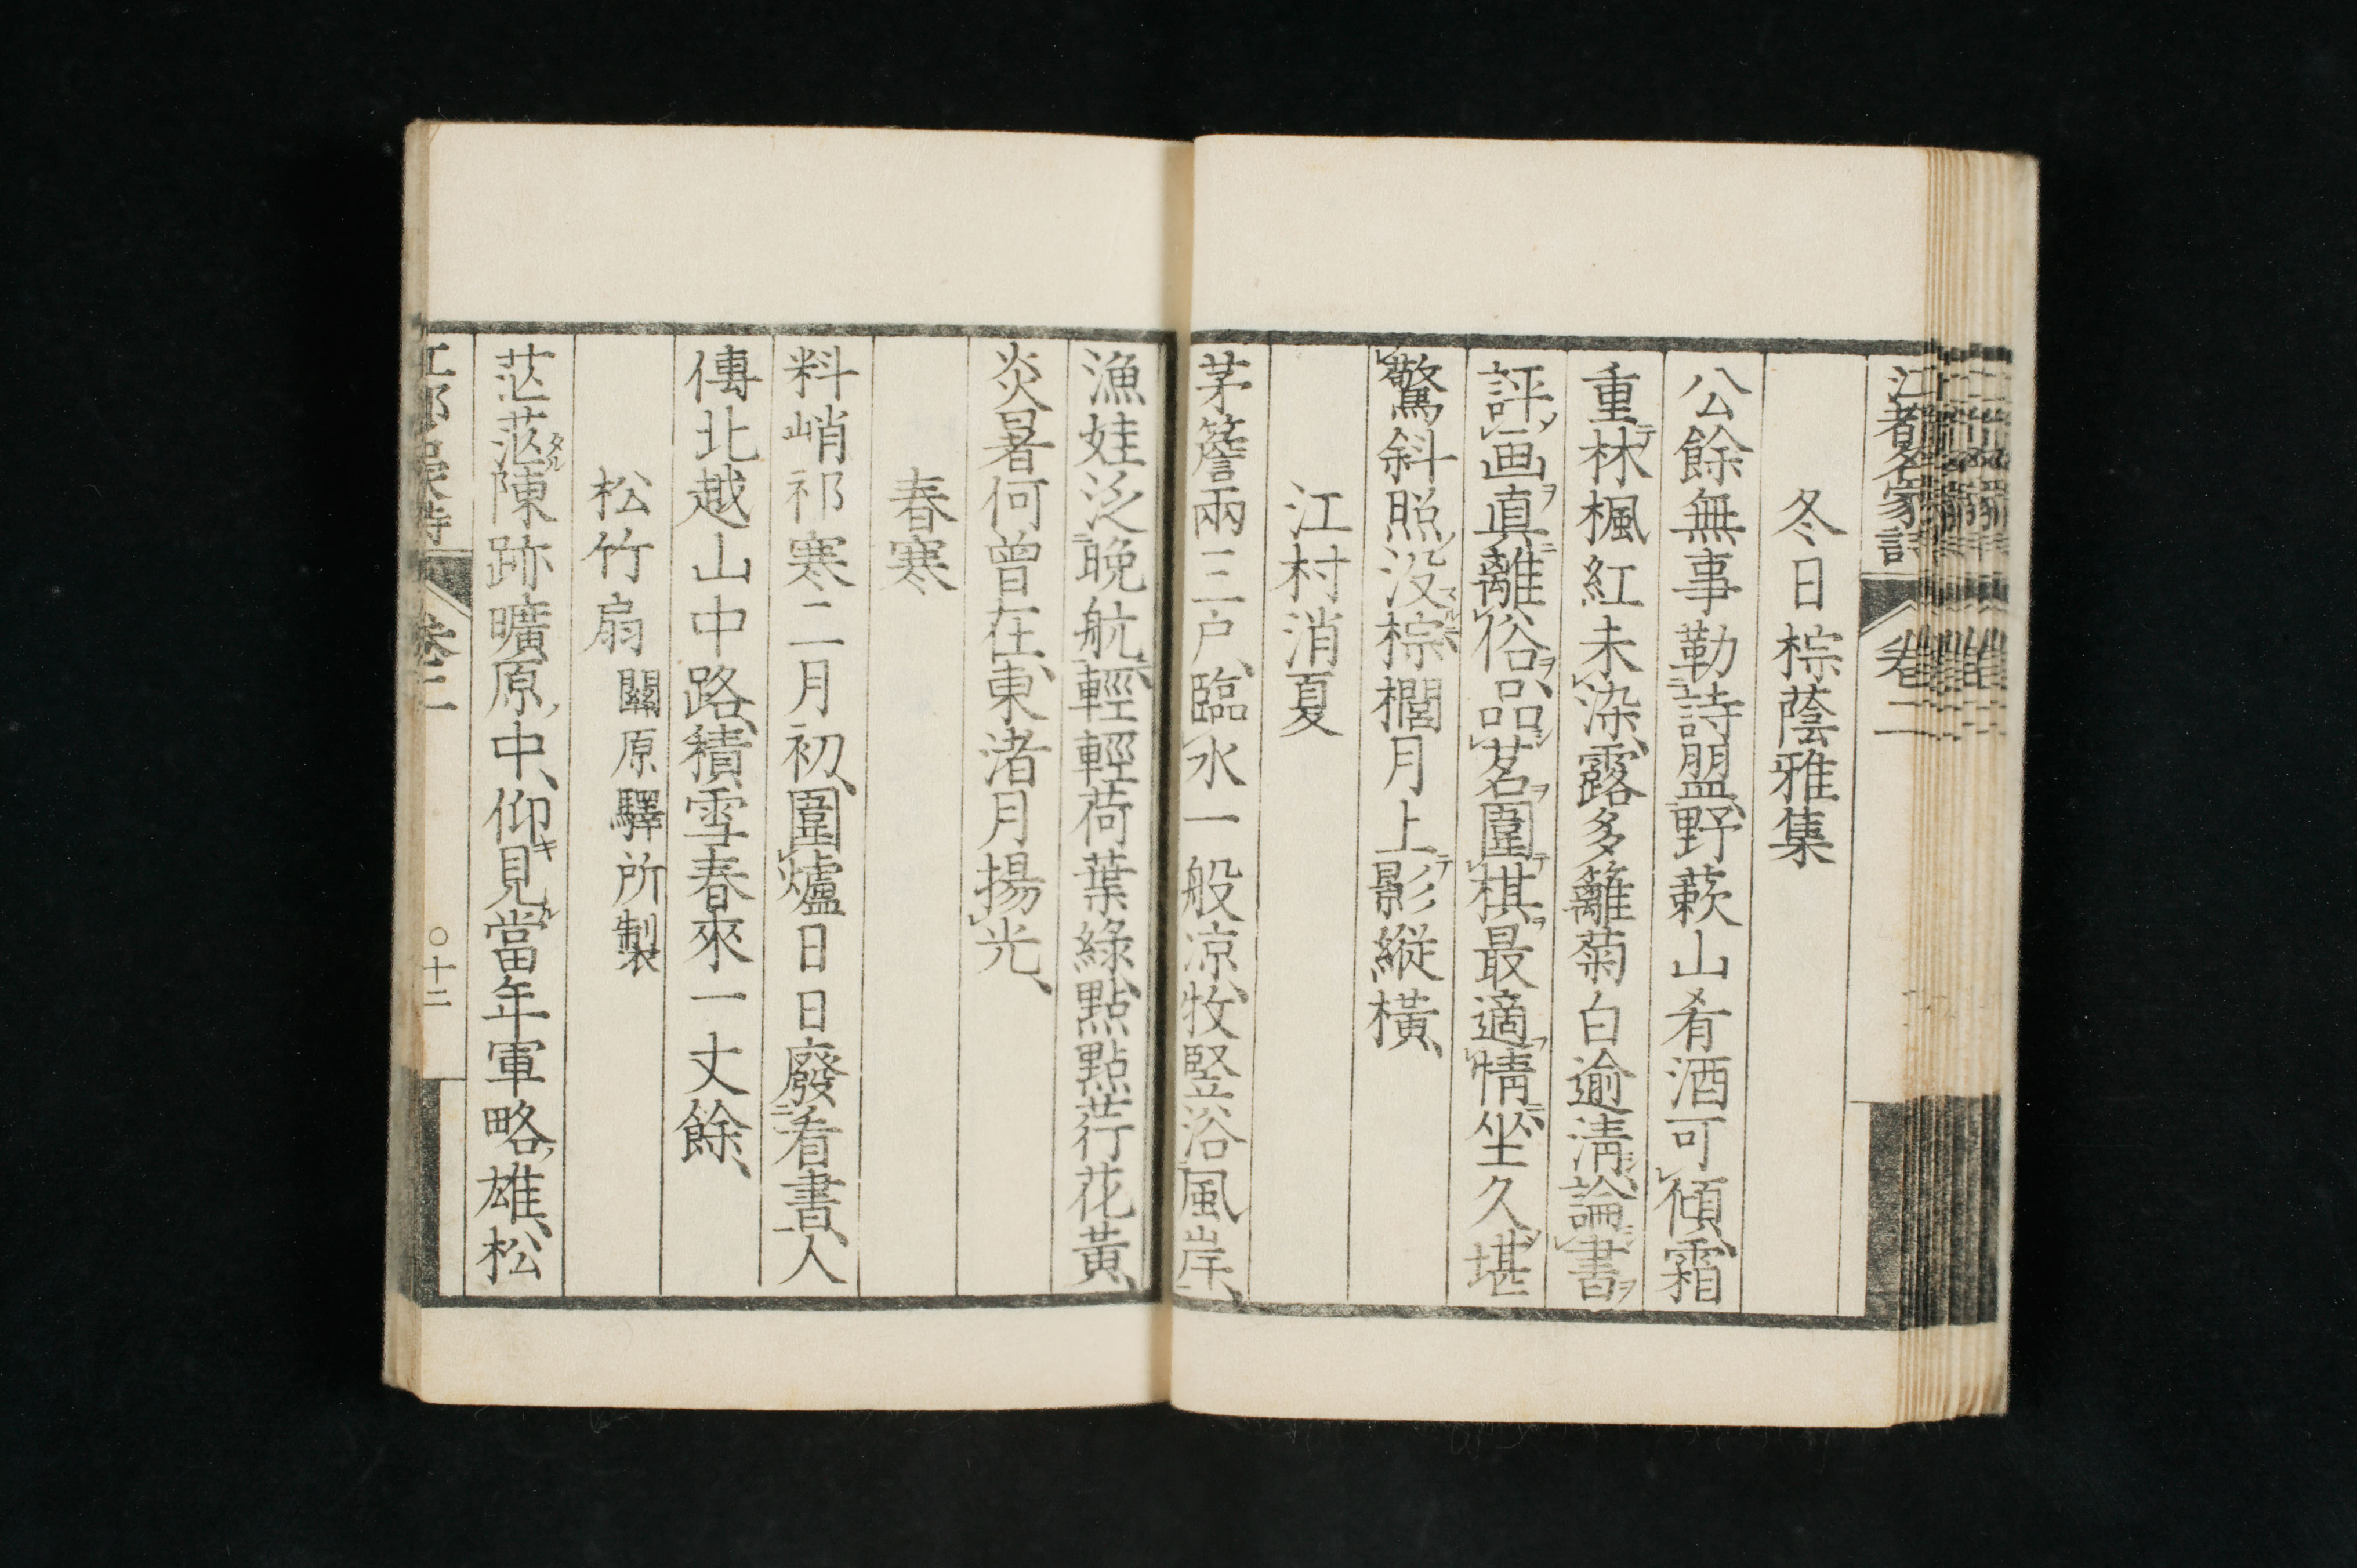 江都名家詩 卷二
冬日棕蔭雅集
公餘無事勒詩盟野蔌山肴酒可傾霜
重林楓紅未染露多籬菊白逾淸論書
評画真離俗品茗圍棋最適情坐久堪
驚斜照没棕櫚月上影縦横
江村消夏
茅簷兩三戸臨水一般凉牧竪浴風岸
漁娃泛晩航輕輕荷葉綠點點荇花黄
炎暑何曾在東渚月揚光
春寒
料峭祁寒二月初圍爐日日廢看書人
傳北越山中路積雪春來一丈餘
松竹扇 關原驛所製
茫茫陳跡曠原中仰見當年軍略雄松
卷二 〇十二